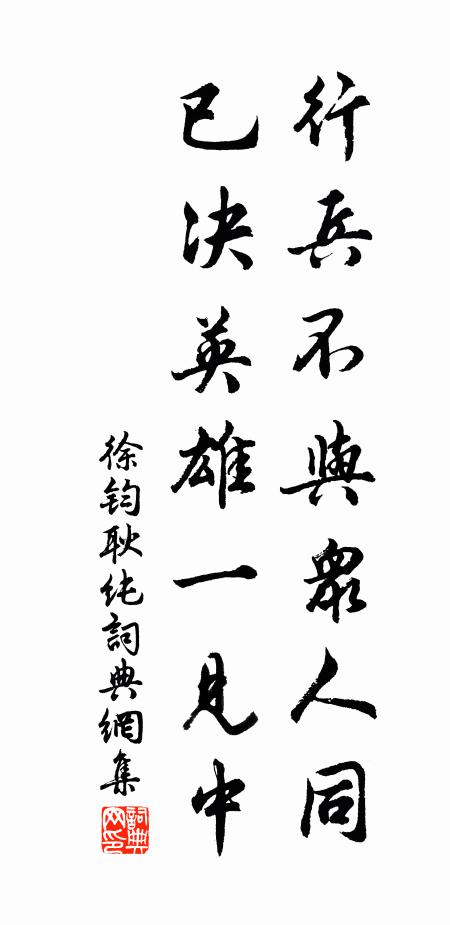 行兵不與衆人同
已决英雄一見中
徐鈞耿純詞典網集
詞典网印